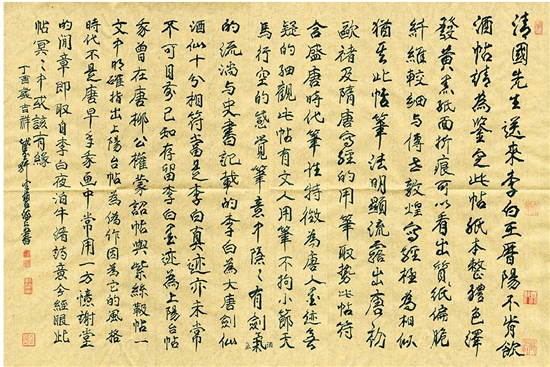 清國先生送來李白王曆陽不肯飲
酒帖請為鑒定此帖紙本整體色澤
發黃黑紙面折痕可以看出質紙偏脆
纖維較細与傳世敦煌寫經極為相似
猶其此帖筆法明顯流露出唐初
歐褚及隋唐寫經的用筆取勢此帖符
合盛唐時代筆性特徵為唐人墨迹無
疑的細觀此帖有文人用筆不拘小節天
馬行空的感覺筆意中隱隱有劍氣
的流淌与史書記載的李白為大唐劍仙
酒仙十分相符當是李白真迹亦未常
不可目前已知存留李白墨迹為上陽台帖
曾在唐柳公權蒙詔帖與紫絲靸帖一
文中明確指出上陽台帖為偽作因為它的風格
時代不是唐早年季魚中常用一方憶謝堂
的閒章即取自李白夜泊牛渚詩意今經眼此
帖冥冥中或該有緣
丁酉歲吉祥